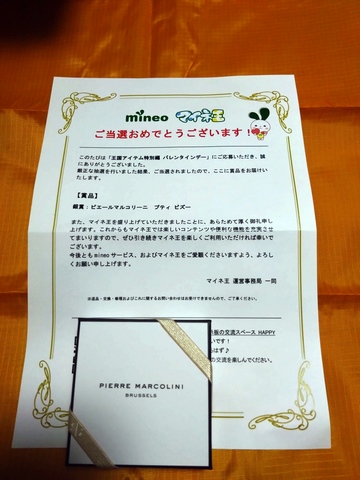 mineo マイネ王
ご当選おめでとうございます!
このたびは「王国アイテム特別編 バレンタインデー」にご応募いただき、誠
にありがとうございました。
厳正な抽選を行いました結果、ご当選されましたので、ここに賞品をお届けい
たします。
【賞品】
銀賞:ピエールマルコリーニ プティ ビズー
また、マイネ王を盛り上げていただきましたことに、あらためて厚く御礼申し
上げます。これからもマイネ王では楽しいコンテンツや便利な機能を充実させ
てまいりますので、ぜひ引き続きマイネ王を楽しくご利用いただければ幸いで
ございます。
今後ともmineoサービス、およびマイネ王をご愛顧くださいますよう、よろし
くお願い申し上げます。
マイネ王 運営事務局 一同
※返品・交換・修理およびこれに関するお問い合わせはお受けできませんので、ご了承ください。
板の交流スペース HAPPY
いです!
るはず♪
の交流を楽しんでください。
PIERRE MARCOLINI
BRUSSELS